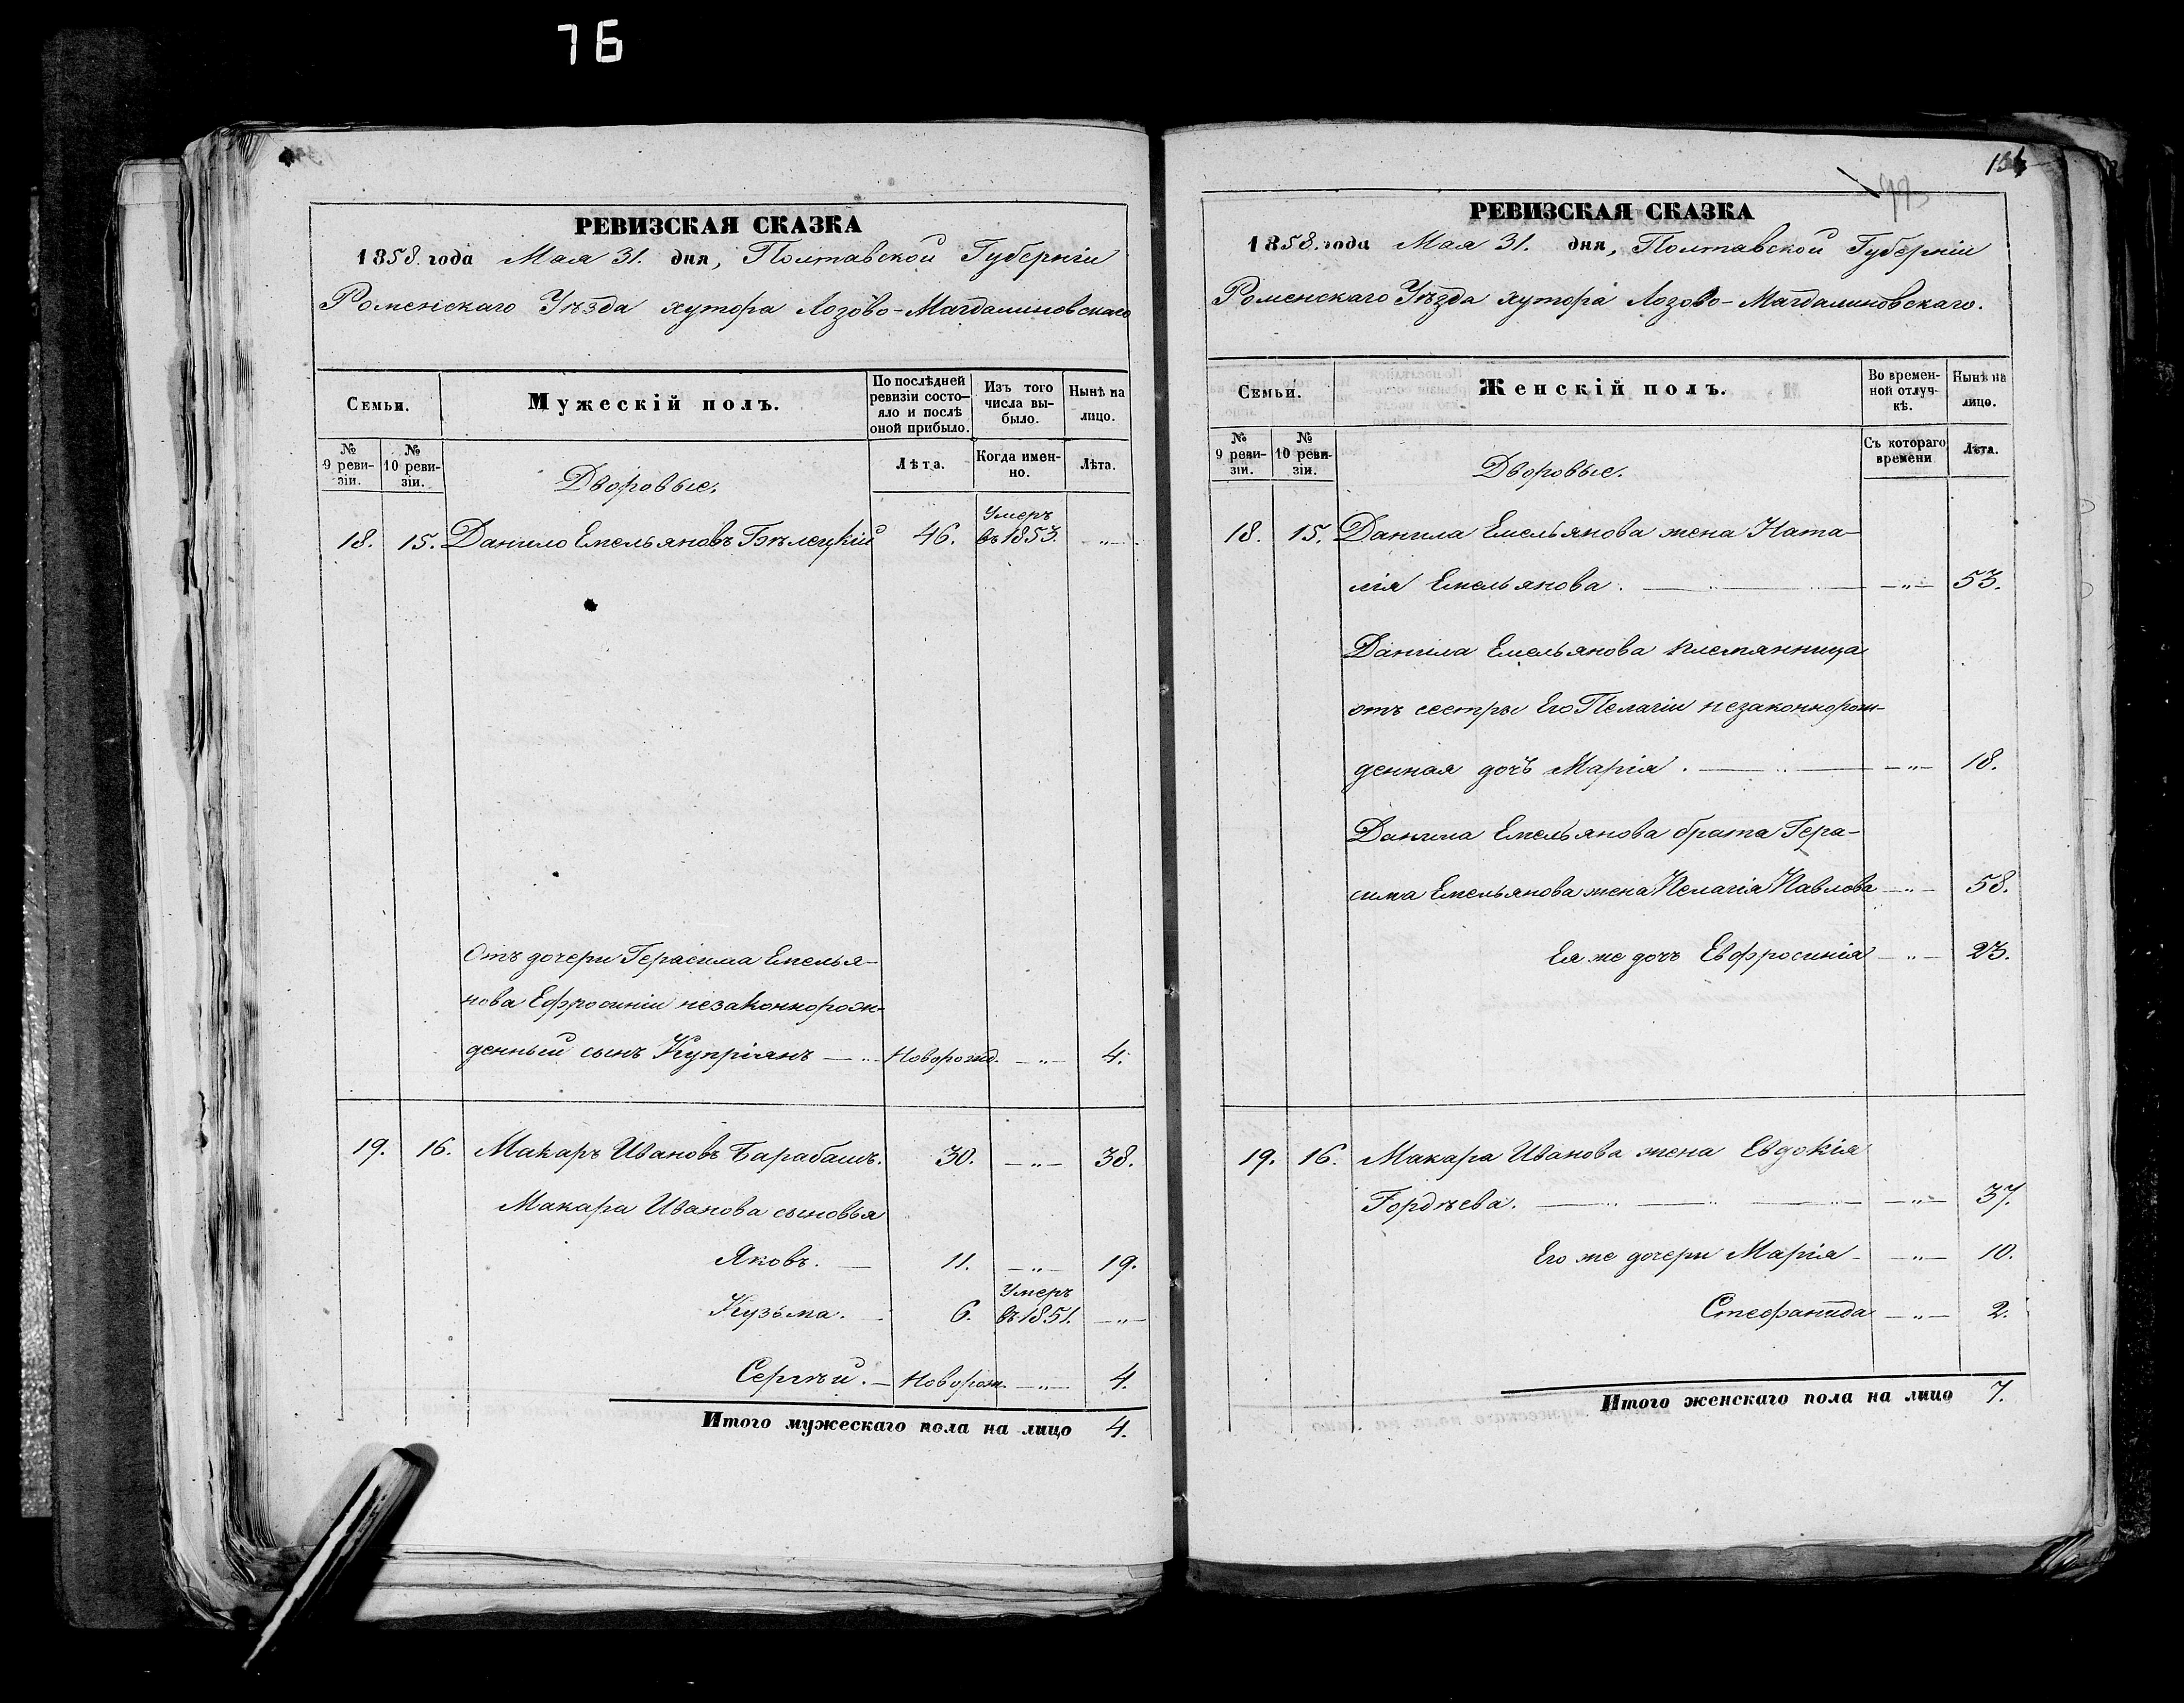 76
РЕВИЗСКАЯ СКАЗКА
1858. года Мая 31. дня, Полтавской Губерніи
Роменскаго Уѣзда хутора Лозово-Магдалиновскаго
Семьи.
Мужескій полъ.
По послѣдней
ревизіи состо-
яло и послѣ
оной прибыло.
Изъ того
числа вы-
было.
Нынѣ на
лицо.
№
9 реви-
зіи.
№
10 реви-
зіи.
Лѣта.
Когда имен-
но.
Лѣта.
Дворовые.
Умеръ
18. 15. Данило Емельяновъ Бѣлецкій 46. въ 1853. — „ —
Отъ дочери Герасима Емелья-
нова Ефросиніи незаконнорож-
денный сынъ Купріянъ — „ Новорожд. — „ — 4.
19. 16. Макаръ Ивановъ Барабашъ. 30. — „ — 38.
Макара Иванова сыновья
Яковъ. — 11. — „ — 19.
Умеръ
Кузьма. — 6. въ 1851. — „ —
Сергѣй. — Новорож. — „ — 4.
Итого мужескаго пола на лицо 4.
РЕВИЗСКАЯ СКАЗКА
1858. года Мая 31. дня, Полтавской Губерніи
Роменскаго Уѣзда хутора Лозово-Магдалиновскаго.
Семьи.
Женскій полъ.
Во времен-
ной отлуч-
кѣ.
Нынѣ на
лицо.
№
9 реви-
зіи.
№
10 реви-
зіи.
Съ котораго
времени
Лѣта.
Дворовые.
18. 15. Данила Емельянова жена Ната-
лія Емельянова. — „ — 53.
Данила Емельянова племянница
отъ сестры Его Пелагіи незаконнорож-
денная дочь Марія. — „ — 18.
Данила Емельянова брата Гера-
сима Емельянова жена Пелагія Павлова — „ — 58.
Ея же дочь Евфросинія — „ — 23.
19. 16. Макара Иванова жена Евдокія
Гордѣева. — „ — 37.
Его же дочери Марія — „ — 10.
Стефанида — „ — 2.
Итого женскаго пола на лицо 7.